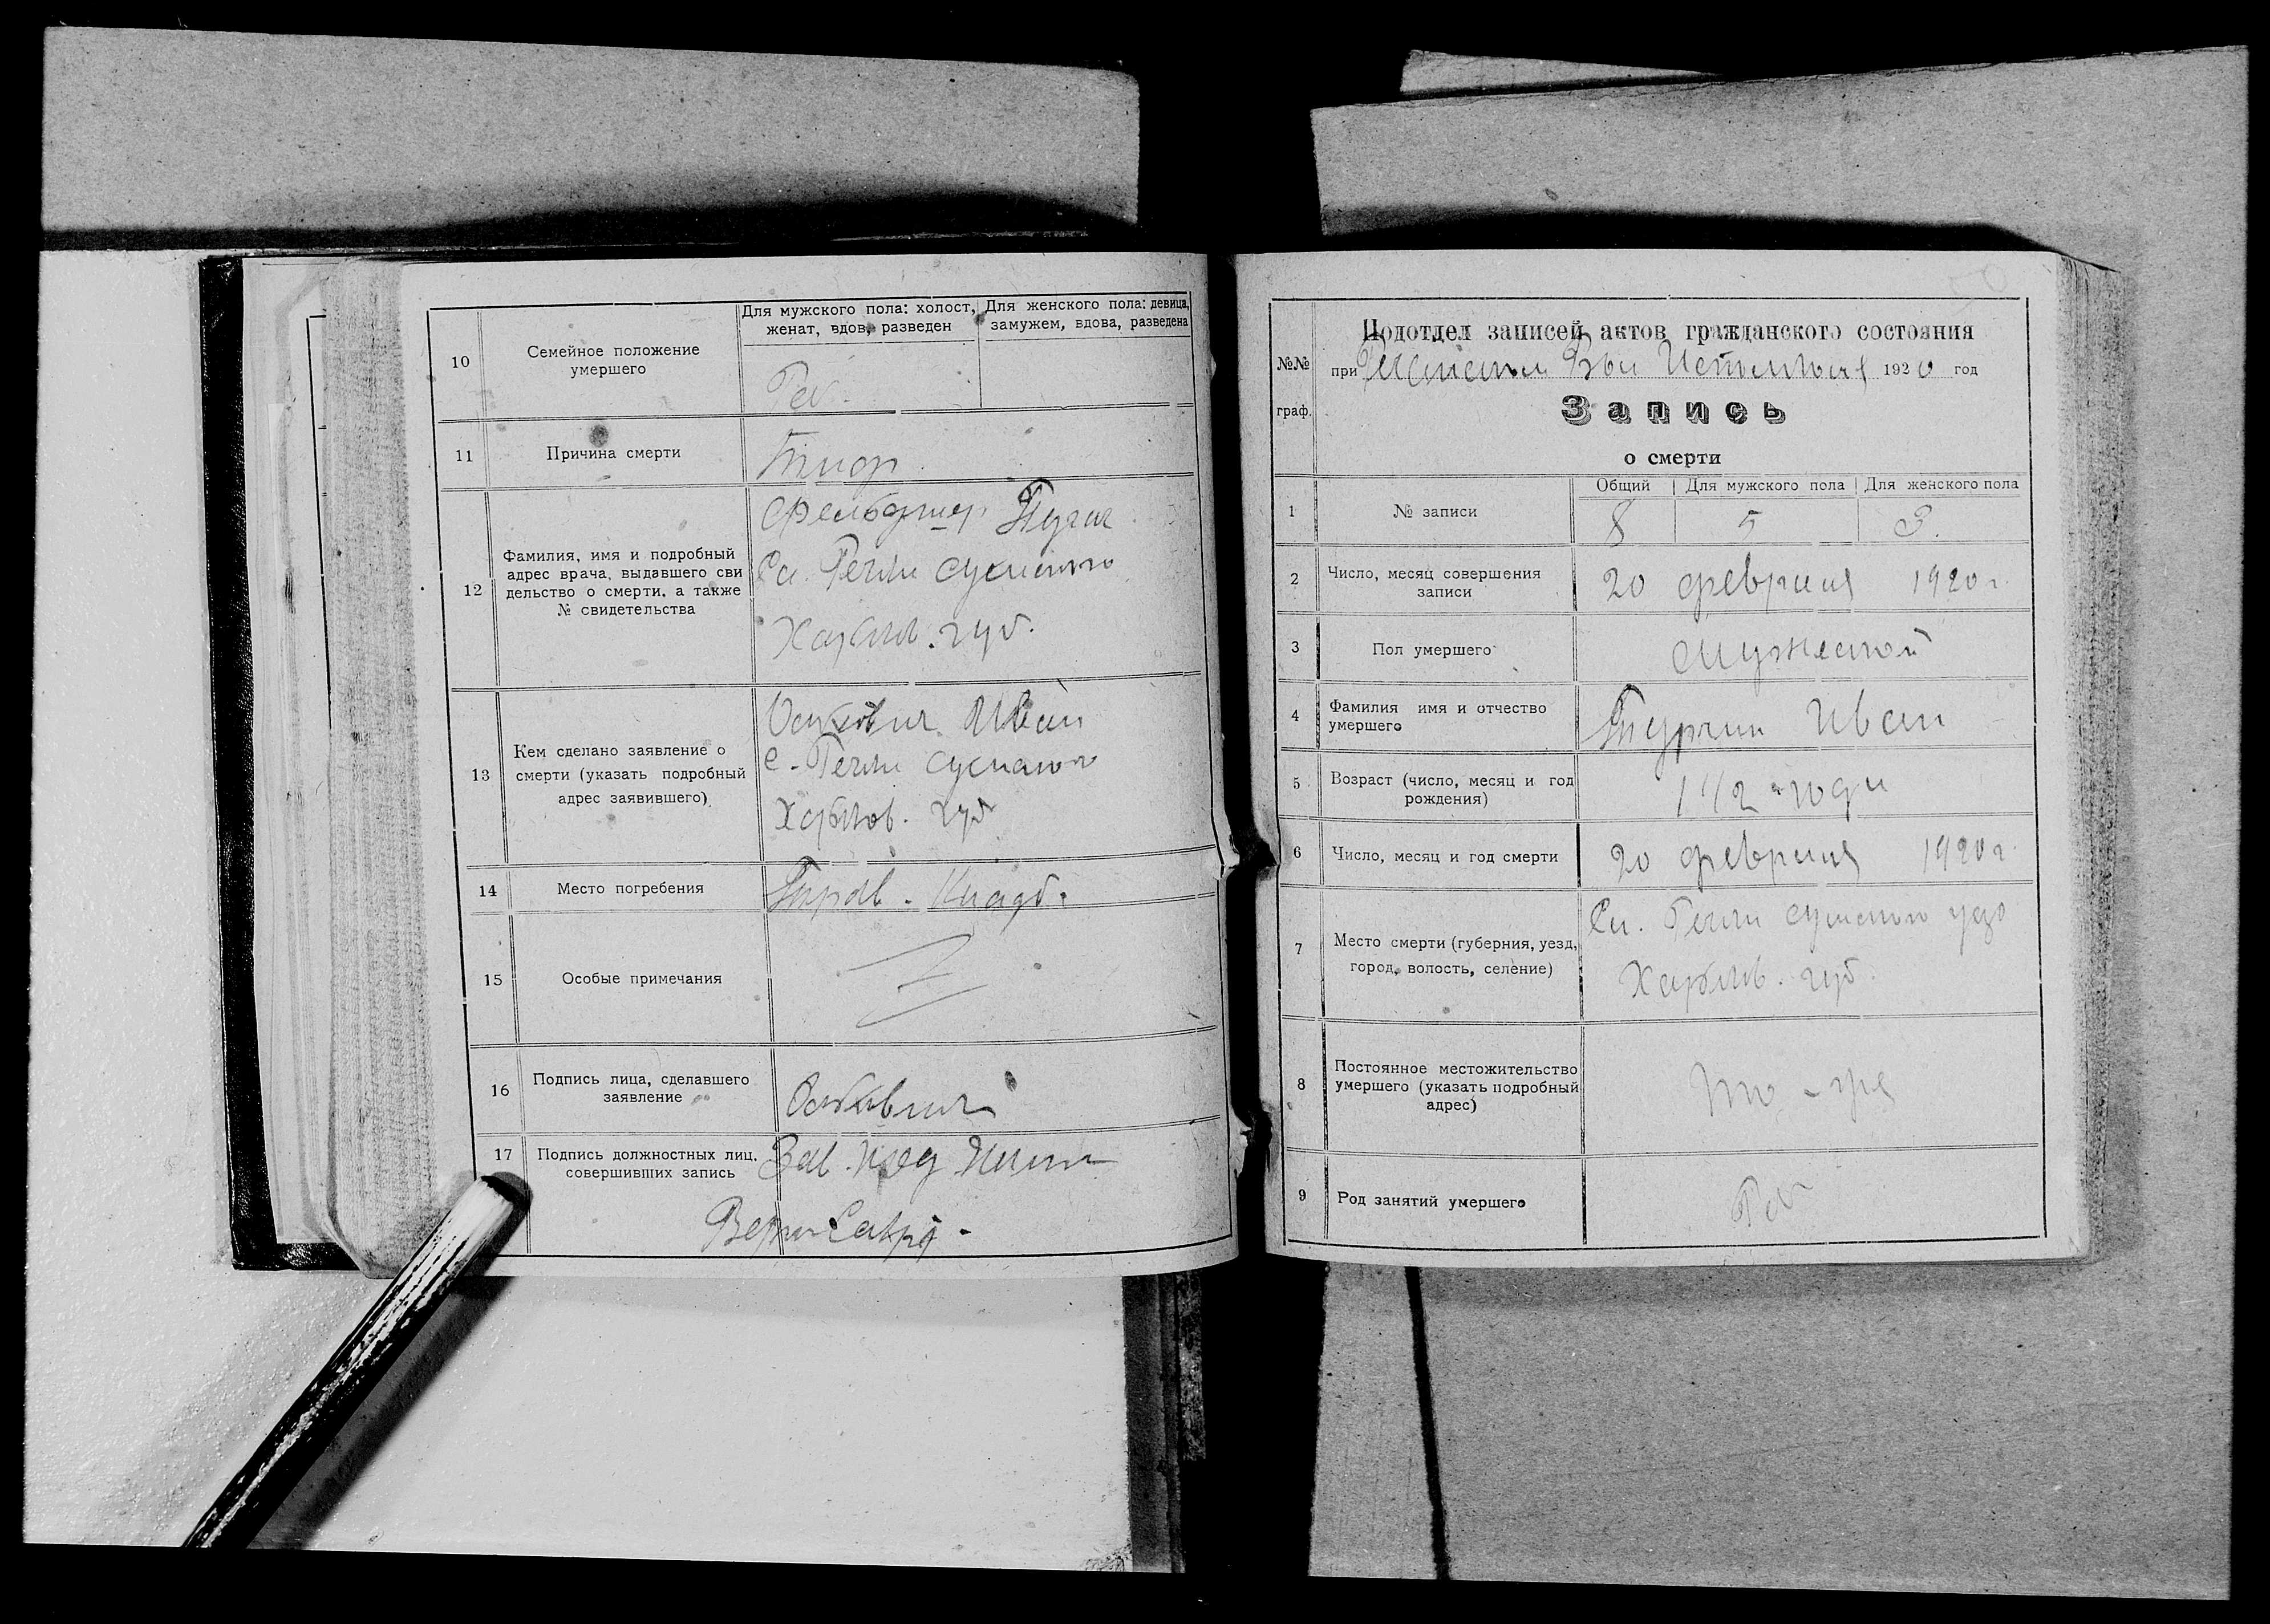 10
Семейное положение
умершего
Для мужского пола: холост,
женат, вдов, разведен
Для женского пола: девица,
замужем, вдова, разведена
Реб.
11
Причина смерти
Тиф
12
Фамилия, имя и подробный
адрес врача, выдавшего сви
дельство о смерти, а также
№ свидетельства
Фельдшер
Сл. Речки Сумского
Харьков. губ.
13
Кем сделано заявление о
смерти (указать подробный
адрес заявившего)
Иван
с. Речки Сумского
Харьков. губ
14
Место погребения
Кладб.
15
Особые примечания
16
Подпись лица, сделавшего
заявление
17
Подпись должностных лиц,
совершивших запись
Зав.
Секр
Подотдел записей актов гражданского состояния
№№
граф.
при 1920 год
Запись
о смерти
1
№ записи
Общий
Для мужского пола
Для женского пола
8
5
3.
2
Число, месяц совершения
записи
20 февраля 1920 г.
3
Пол умершего
Мужской
4
Фамилия имя и отчество
умершего
Турчин Иван
5
Возраст (число, месяц и год
рождения)
1 1/2 года
6
Число, месяц и год смерти
20 февраля 1920 г.
7
Место смерти (губерния, уезд,
город, волость, селение)
Сл. Речки Сумского уез
Харьков. губ.
8
Постоянное местожительство
умершего (указать подробный
адрес)
то-же
9
Род занятий умершего
Реб